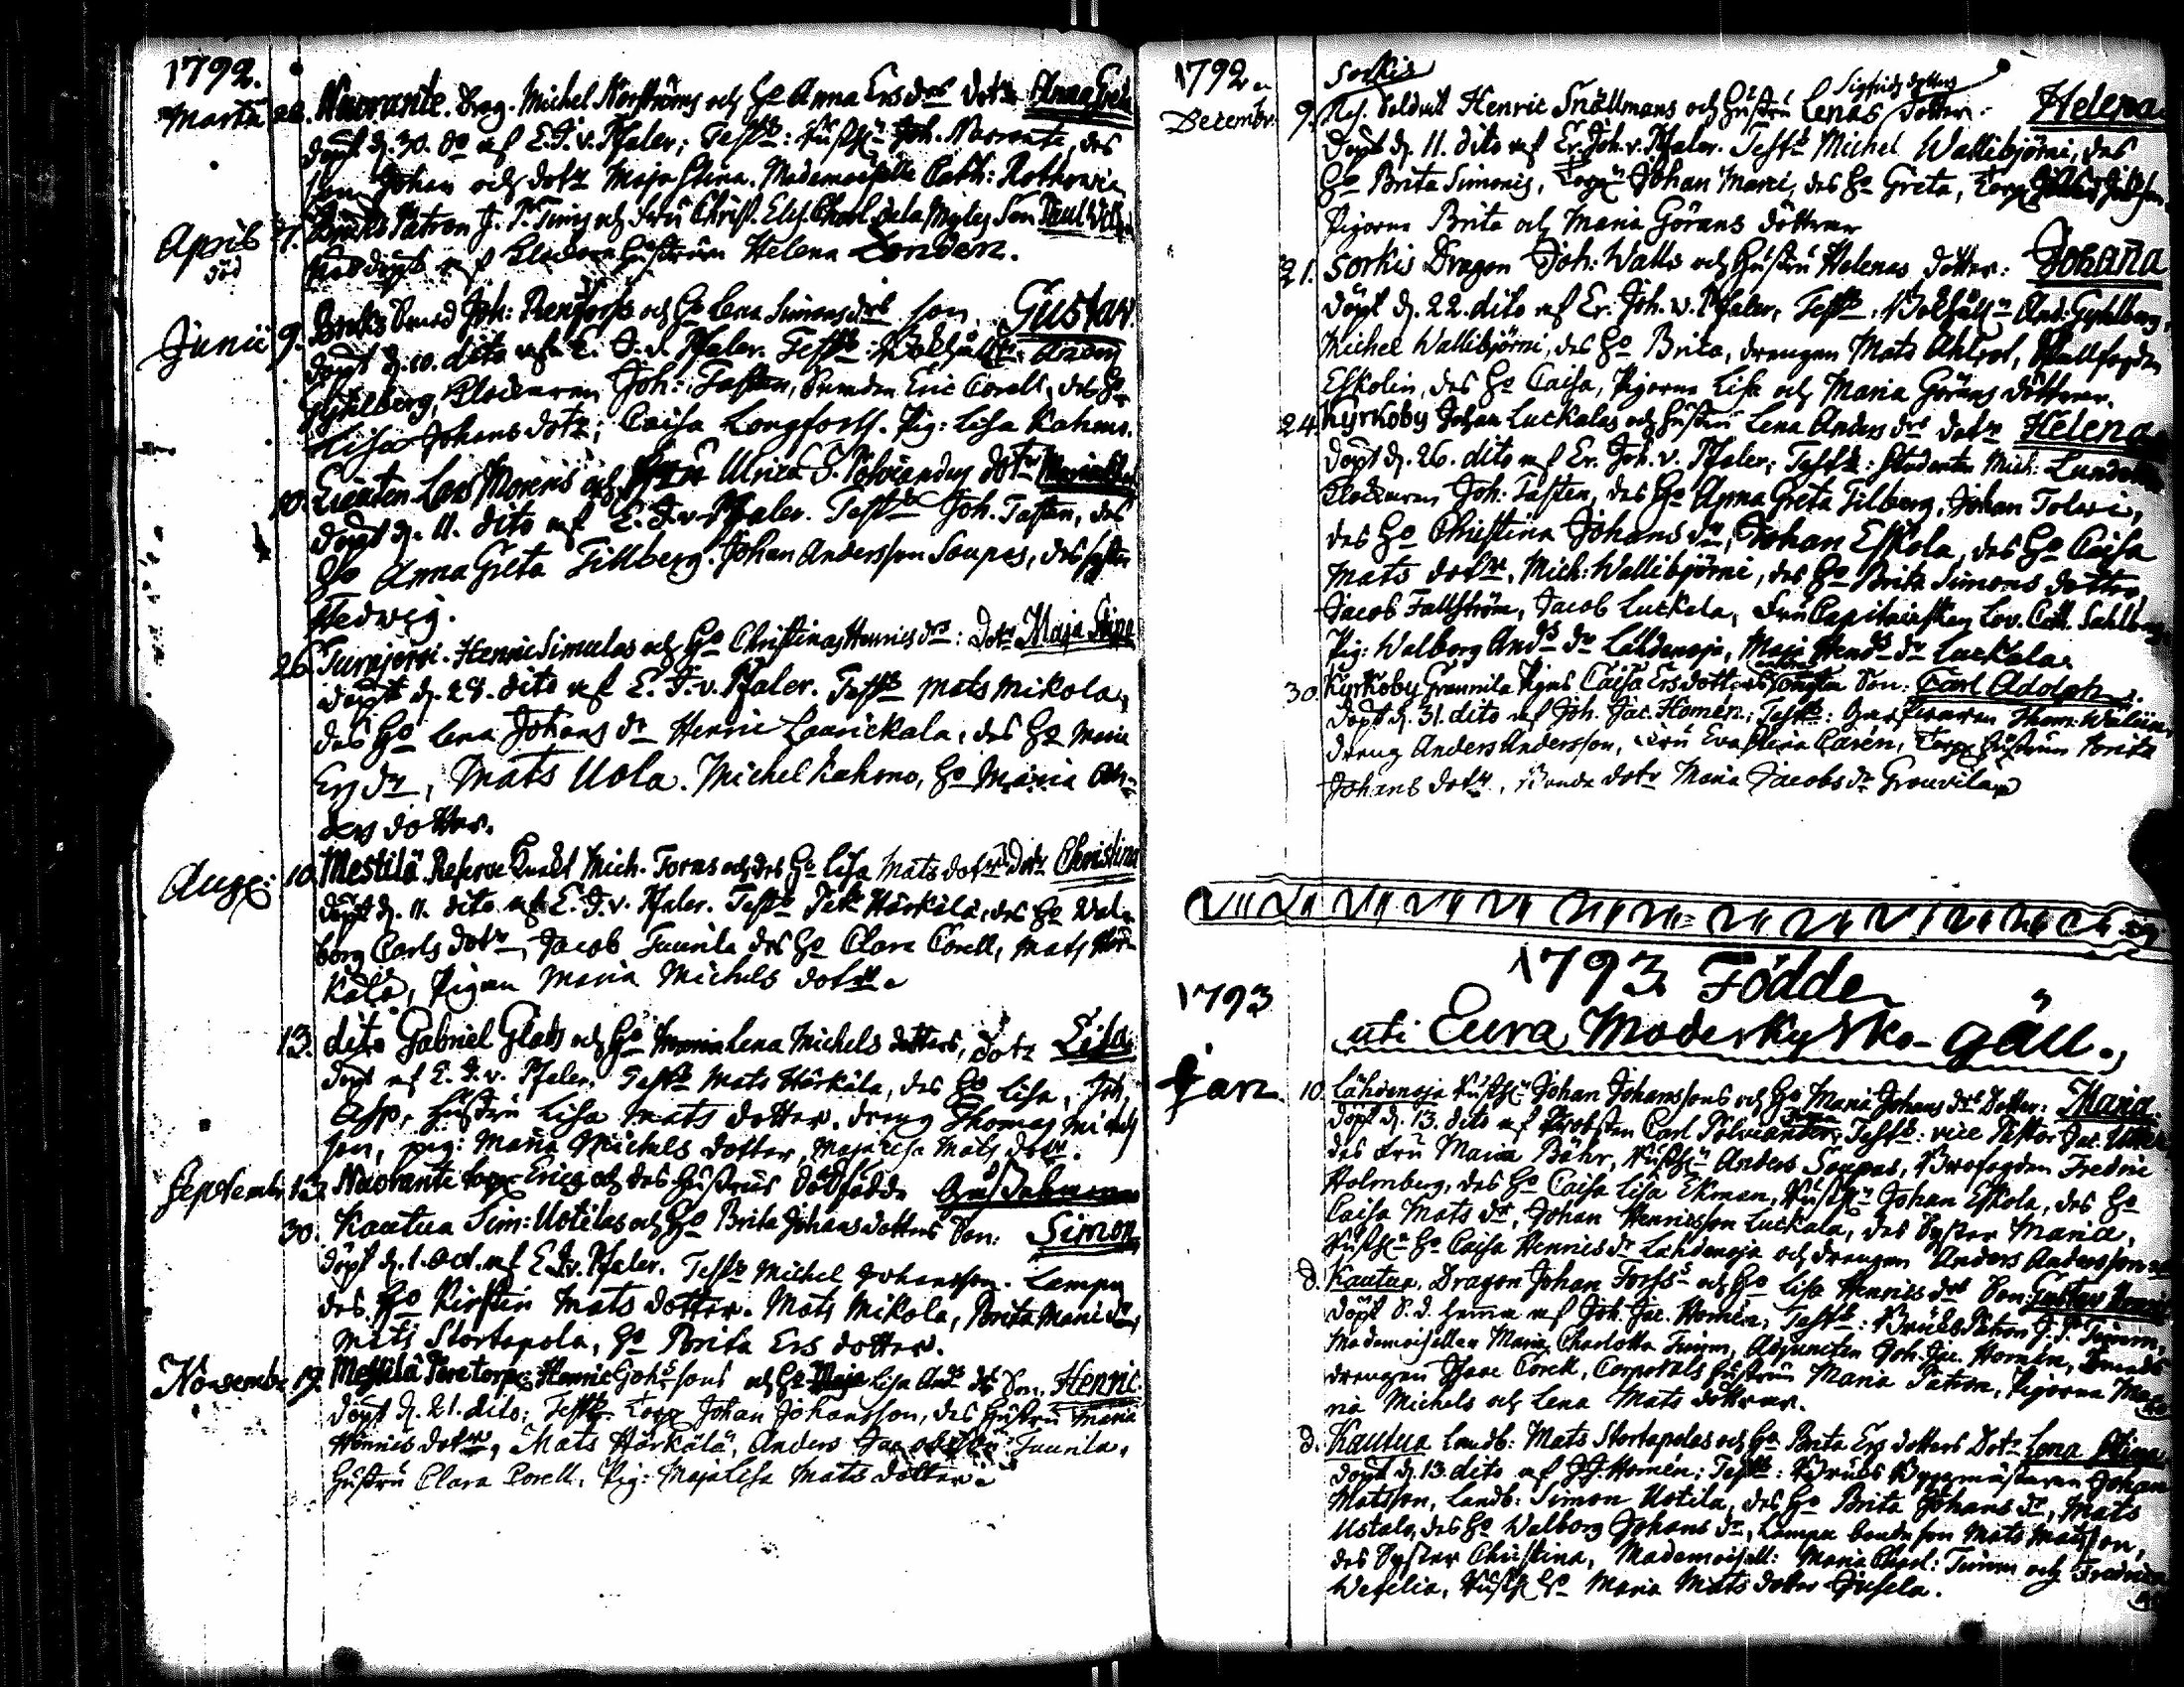 1792.
Martii 28. Naarante. Drag. Michel Norströms och Ho Anna Ersdrs dotr Anna Greta
döpt d. 30. do af E. J. v. Pfaler; Testb: Joh. Narante, des
son Johan och dotr Maja Stina. Mademoiselle Cath: Rothovia
April 7. Bruks Patron J. P. Timm och fru Christ. Son Paul
död döpt af Klockare Hustrun Helena Londen.
Junii 9. Bruks Smed Joh: Renforss och Ho Lena Simonsdrs son Gustav.
döpt d. 10. dito af E. J. v. Pfaler. Testb: And:
Gyhlberg, Klockaren Joh: Tasten, Smeden Eric Corell, des Ho
Lisa Johansdotr; Caisa Longforss. Pig: Lisa Kahmo.
10. Lars Morens och Ulrica S. Polviander dotr
döpt d. 11. dito af E. J. v. Pfaler. Testb Joh. Tasten, des
Ho Anna Greta Tillberg. Johan Andersson Soupas, des syster
Hedvig.
26. Turajervi. Henric Simulas och Ho Christinas Henricsdrs: Dotr Maja Stina
döpt d. 28. dito af E. J. v. Pfaler. Testb Mats Mikola,
des Ho Lena Johans dr Henric Laurickala, des Ho Maria
Ers dr, Mats Uola. Michel Kahmo, Ho Maria An-
ders dotter.
Aug: 10. Mestilä. Reserve Karl Mich. Torns och des Ho Lisa Mats dotrs Dotr Christina
döpt d. 11. dito af E. J. v. Pfaler. Testb Härkälä, des Ho Wal-
borg Carls dotr, Jacob Taurila des Ho Clara Corell, Mats Här-
kälä, Pigan Maria Michels dotter.
13. dito Gabriel Glads och Ho Lena Michels dotters, Dotr Lisa
döpt af E. J. v. Pfaler. Testb Mats Härkälä, des Ho Lisa, Joh.
Asp, Hustru Lisa Mats dotter, dreng Thomas Michels
son, pig: Maria Michels dotter, Maja Lisa Mats dotr.
Septembr 12. Naarante torp. Erics och des Hustrus dödfödde
30. Kautua Sim: Uotilas och Ho Brita Johansdotters Son: Simon
döpt d. 1. Oct. af E. J. v. Pfaler. Testb Michel Johansson. Lampa
des Ho Kirstin Mats dotter. Mats Mikola, Brita
Mats Stortapola, Ho Brita Ers dotter.
Novembr 19. Mestilä torp: Henric Johssons och Ho Lisa Ands drs Son. Henric.
döpt d. 21. dito; Testb. Torp Johan Johansson, des Hustru Maria
Henrics dotr, Mats Härkälä, Anders Taurila,
Hustru Clara Corell. Pig: Maja Lisa Mats dotter.
1792.
Sorkis
Decembr. 9. Res. Soldat Henric Snällmans och Hustru Lenas Sigfrids dotters dotter: Helena
döpt d. 11. dito af Er. Joh. v. Pfaler. Testb Michel Wallibjörni, des
Ho Brita Simonis, Torp Johan Marci, des Ho Greta, Torp
Pigorna Brita och Maria Görans döttrar
21. Sorkis Dragon Joh: Walls och Hustru Helenas dotter: Johana
döpt d. 22. dito af Er. Joh. v. Pfaler, Testb: And: Gyhlberg,
Michel Wallibjörni, des Ho Brita, drengen Mats Ahlrot,
Eskolin, des Ho Caisa, Pigorna Lisa och Maria Görans döttrar.
24. Kyrkoby Johan Luckalas och Hustru Lena Anders drs dotr Helena
döpt d. 26. dito af Er. Joh. v. Pfaler; Testb: Studenten Mich:
Klockaren Joh: Tasten, des Ho Anna Greta Tilberg, Johan Tolvi,
des Ho Christina Johans dr, Johan Eskola, des Ho Caisa
Mats dotr, Mich: Wallibjörni, des Ho Brita Simons dotter,
Jacob Fallström, Jacob Luckala, Fru Capitainskan Lov. Cath. Sahlberg
Pig: Walborg Ands dr Lähdenoja, Maja Hends dr Luckala.
30. Kyrkoby Grouvila Pigas Caisa Ersdotters Son: Carl Adolph.
döpt d. 31. dito af Joh. Jac. Homén; Testb: Garfvaren Thom: Walén,
dreng Anders Andersson, Fru Eva Stina Carén, Torp Hustrun Brita
Johans dotr, Bonde dotr Maria Jacobs dr Grouvila
1793. Födde
uti Eura Moderkyrko-Gäll.
1793
Jan. 10. Lähdenoja Johan Johanssons och Ho Maria Johans drs Dotter: Maria.
döpt d. 13. dito af Probsten Carl Polviander; Testb: vice Pastor Jac.
des Fru Maria Bähr, Anders Soupas, Brofogden Fredric
Holmberg, des Ho Caisa Lisa Ekman, Johan Eskola, des Ho
Caisa Mats dr, Johan Henricsson Luckala, des Syster Maria,
Ho Caisa Henrics dr Lähdenoja och drengen Anders Andersson
d. Kautua. Dragon Johan Forss och Ho Lisa Henrics drs Son: Gustav Henric
döpt S. d. hemma af Joh. Jac. Homén; Testb: Bruks Patron J. P. Timm,
Mademoisellen Maria Charlotta Timm, Adjuncten Joh. Jac. Homén, Smeds
drengen Isaac Corell, Corporals Hustrun Maria Patron, Pigorna Ma-
ria Michels och Lena Mats döttrar.
d. Kautua Landb: Mats Stortapolas och Ho Brita Ers dotters Dotr Lena Stina
döpt d. 13. dito af J J Homén; Testb: Bruks Byggmästaren Johan
Matsson, Landb: Simon Uotila, des Ho Brita Johans dr, Mats
Ustalo, des Ho Walborg Johans dr, Lampa bonde son Mats Matsson,
des Syster Christina, Mademoisell: Maria Charl: Timm och Fredrica
Wefelia, Ho Maria Mats dotter Jusela.